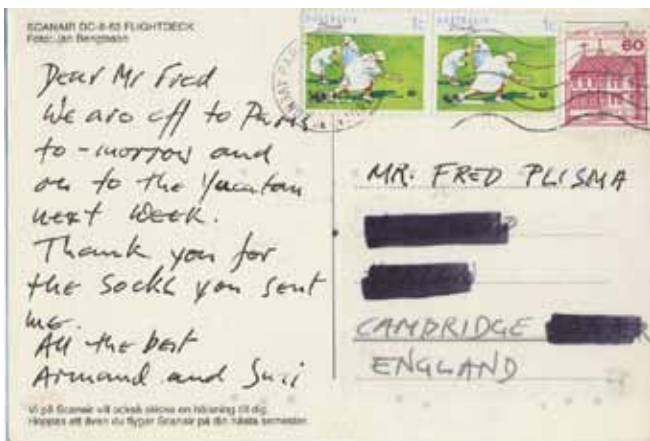 SCANAIR DC-8-63 FLIGHTDECK
Foto: Jan Bengtsson
Dear Mr Fred
We are off to Paris
to-morrow and
on to the Yucatan
next week.
Thank you for
the socks you sent
me.
All the best
Armand and Suzi
Vi på Scanair vill också skicka en hälsning till dig.
Hoppas att även du flyger Scanair på din nästa semester.
AUSTRALIA 1c
AUSTRALIA 1c
60
MR. FRED PLISMA
CAMBRIDGE
ENGLAND